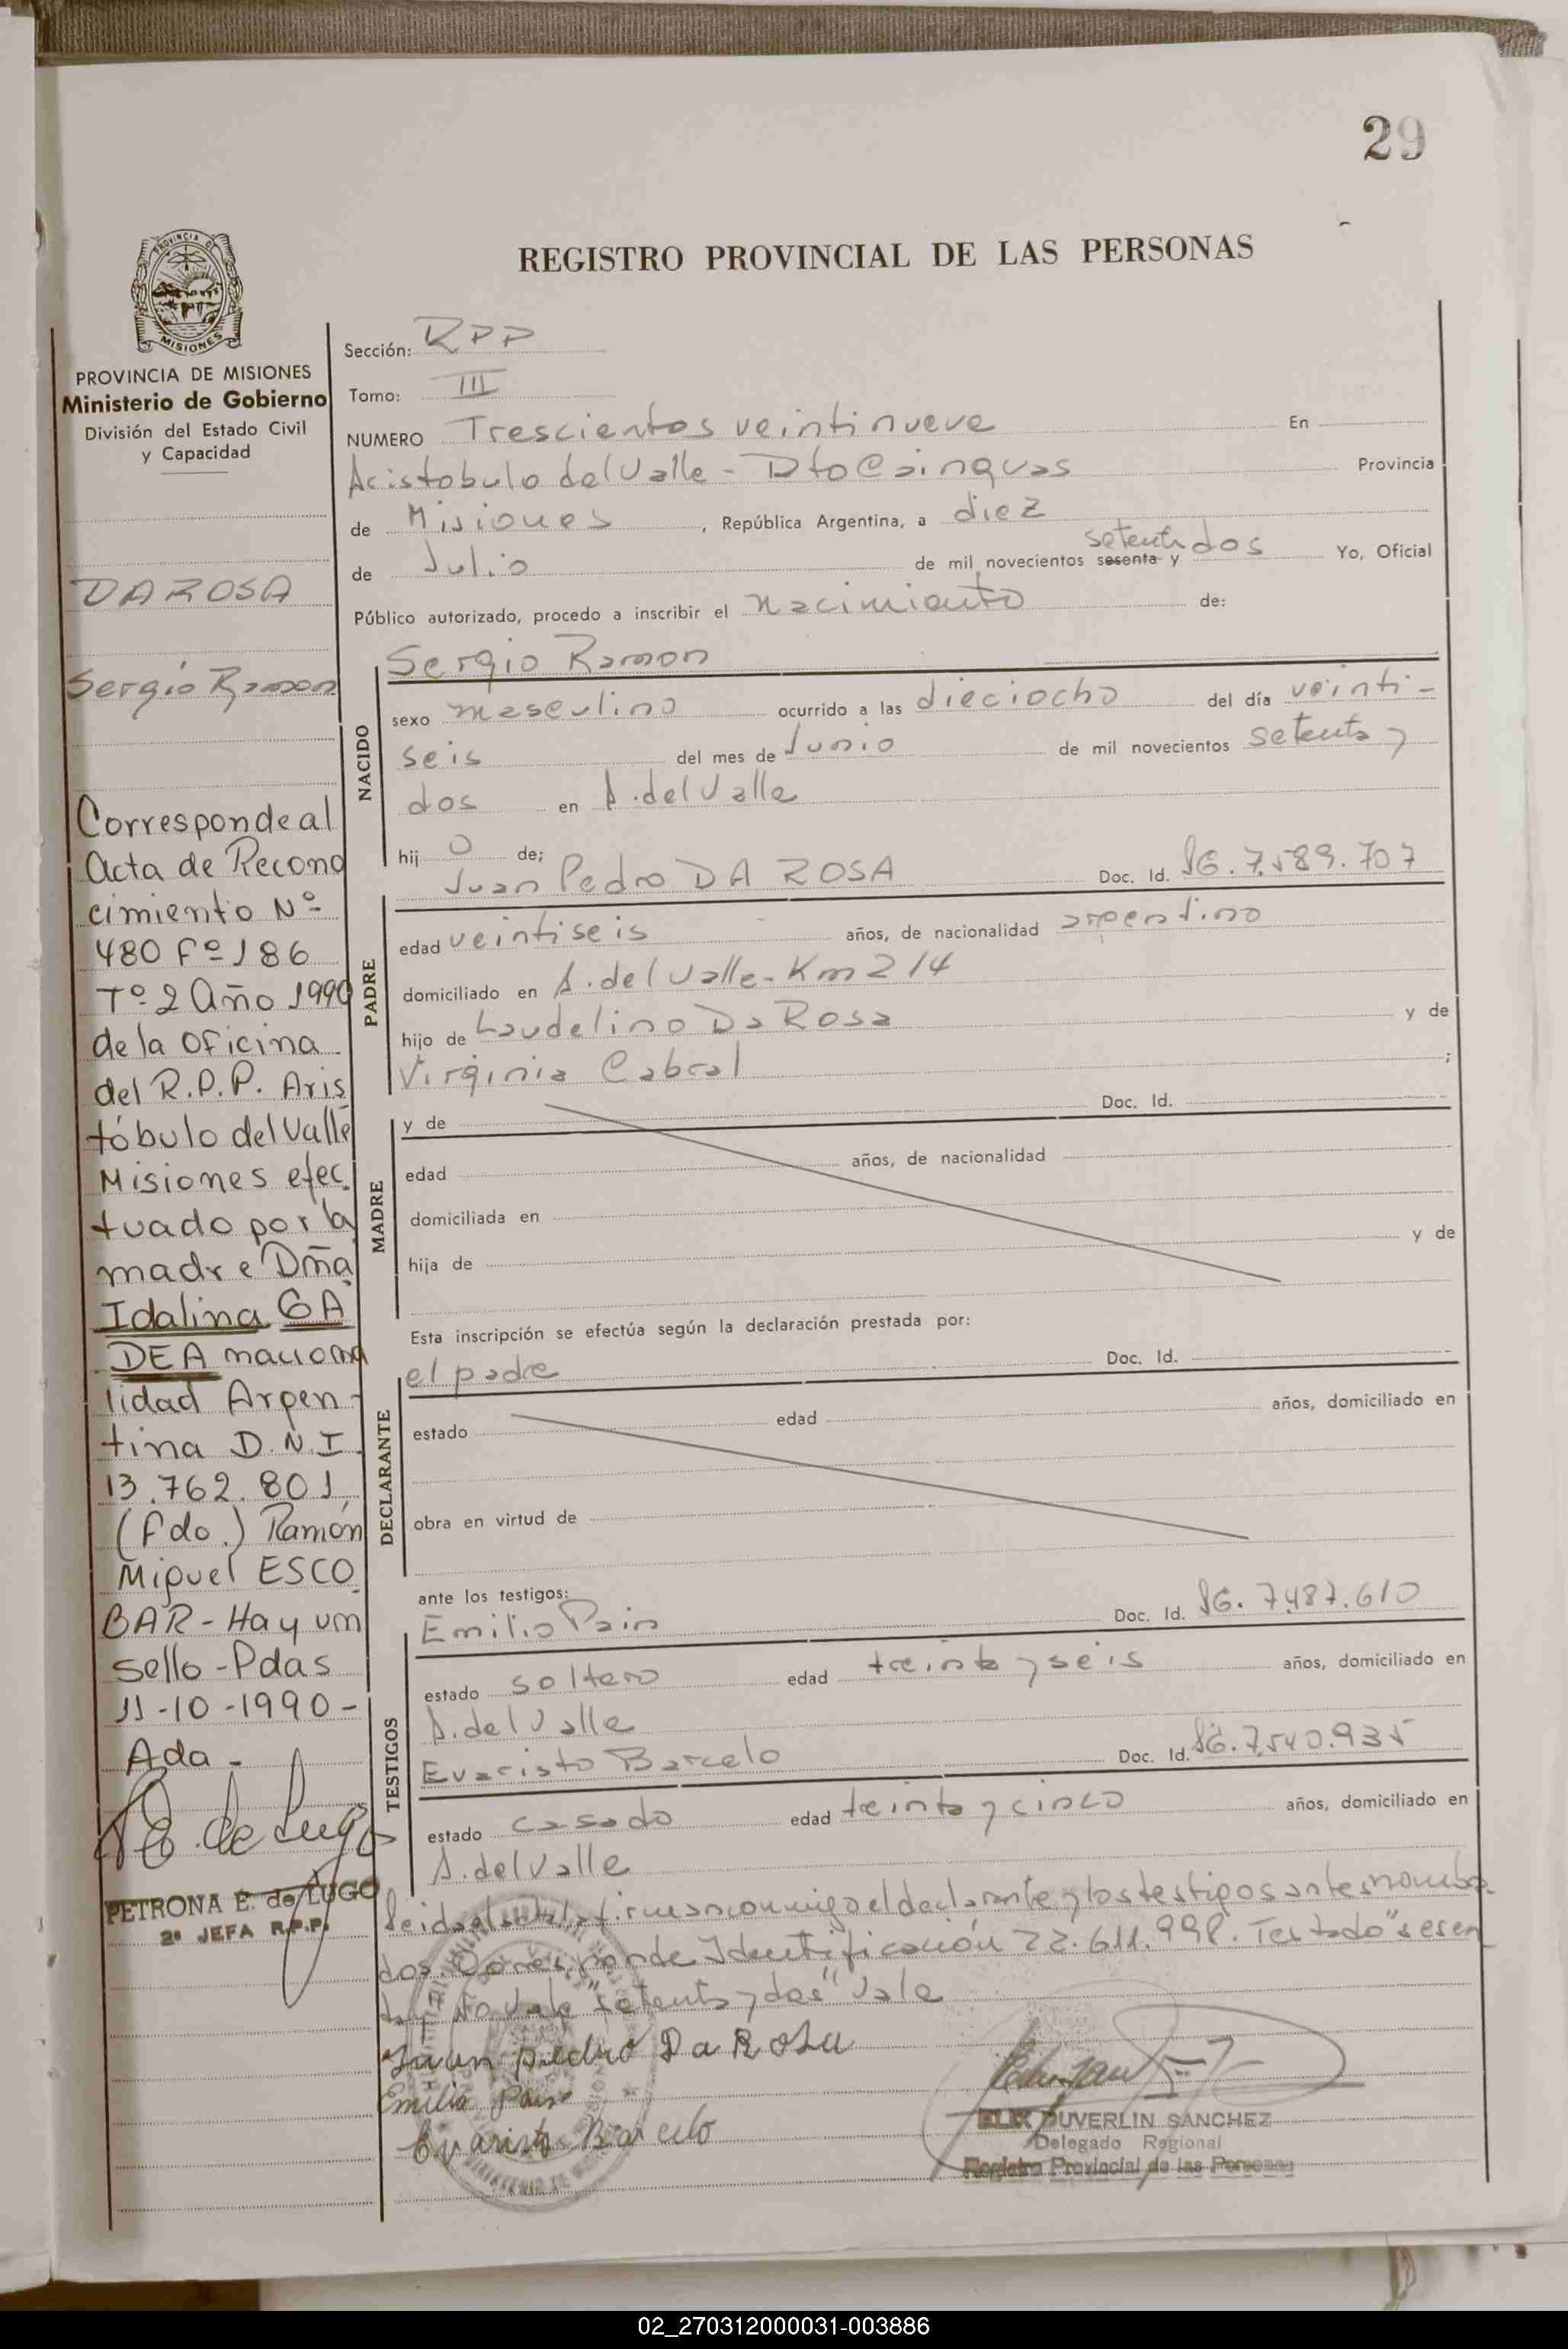 29
REGISTRO PROVINCIAL DE LAS PERSONAS
PROVINCIA DE
MISIONES
PROVINCIA DE MISIONES
Ministerio de Gobierno
División del Estado Civil
y Capacidad
DA ROSA
Sergio Ramon
Corresponde al
Acta de Recono
cimiento Nº
480 Fº 186
Tº 2 Año 1990
de la Oficina
del R.P.P. Aris
tóbulo del Valle
Misiones efec
tuado por la
madre Dña
Idalina GA
DEA naciona
lidad Argen-
tina D.N.I.
13.762.801
(Fdo.) Ramón
Miguel ESCO
BAR - Hay un
sello - Pdas
11-10-1990-
Ada -
de Lugo
PETRONA E. de LUGO
2ª JEFA R.P.P.
Sección: RPP
Tomo: III
NUMERO Trescientos veintinueve En
Aristobulo del Valle - Dto Cainguas Provincia
de Misiones, República Argentina, a diez
de Julio de mil novecientos sesenta y setenti dos Yo, Oficial
Público autorizado, procedo a inscribir el nacimiento de:
Sergio Ramon
NACIDO
sexo masculino ocurrido a las dieciocho del día veinti-
seis del mes de Junio de mil novecientos setenta y
dos en A. del Valle
hij o de;
Juan Pedro DA ROSA Doc. Id. 7.589.707
PADRE
edad veintiseis años, de nacionalidad argentino
domiciliado en A. del Valle - Km 214
hijo de Laudelino Da Rosa y de
Virginia Cabral ;
y de Doc. Id.
MADRE
edad años, de nacionalidad
domiciliada en
hija de y de
Esta inscripción se efectúa según la declaración prestada por:
el padre Doc. Id.
DECLARANTE
estado edad años, domiciliado en
obra en virtud de
ante los testigos:
Emilio Pain Doc. Id. 7.487.610
TESTIGOS
estado soltero edad treinta y seis años, domiciliado en
A. del Valle
Evaristo Barcelo Doc. Id. 7.540.935
estado casado edad treinta y cinco años, domiciliado en
A. del Valle
Leida el acta la firman conmigo el declarante y los testigos antes nombra
dos. Corresponde Identificación 22.611.998. Testado "sesen
ta" No vale "setenta y dos" Vale
Juan Pedro Da Rosa
Emilio Pain
Evaristo Barcelo
DUVERLIN SANCHEZ
Delegado Regional
Registro Provincial de las Personas
02_270312000031-003886